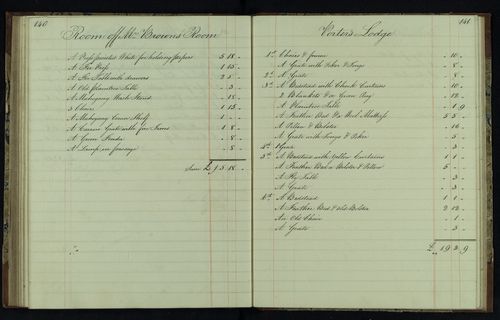 140
Room off Mr Brown's Room
A Press painted White for holding papers 5 18 -
A Fir Press 1 15 -
A Fir Table with drawers 2 5 -
A Old Table - 3 -
A Mahogany Wash Stand - 18 -
3 Chairs 1 15 -
A Mahogany Corner Shelf 1 - -
A Carron Grate with Fur Irons 1 8 -
A - 8 -
A Lamp in passage - 8 -
Sum £
141
Porter's Lodge
1st Chairs & - 10 -
A Grate with Poker & Tongs - 8 -
2d A Grate - 8 -
3d A Bedstead with Check Curtains - 10 -
2 Blankets & a Green Rug - 12 -
A Table - 1 9
A Feather Bed & a Wool Mattress 5 5 -
A Pillow & Bolster - 16 -
A Grate with Tongs & Poker - 8 -
- 3 -
A Bedstead with Yellow Curtains 1 1 -
A Feather Bed a Bolster & Pillow 5 - -
A Fly Table - 3 -
A Grate - 3 -
6th A Bedstead 1 1 -
A Feather Bed & old Bolster 2 12 -
An Old Chair - 1 -
A Grate - 3 -
£ 19 2 9